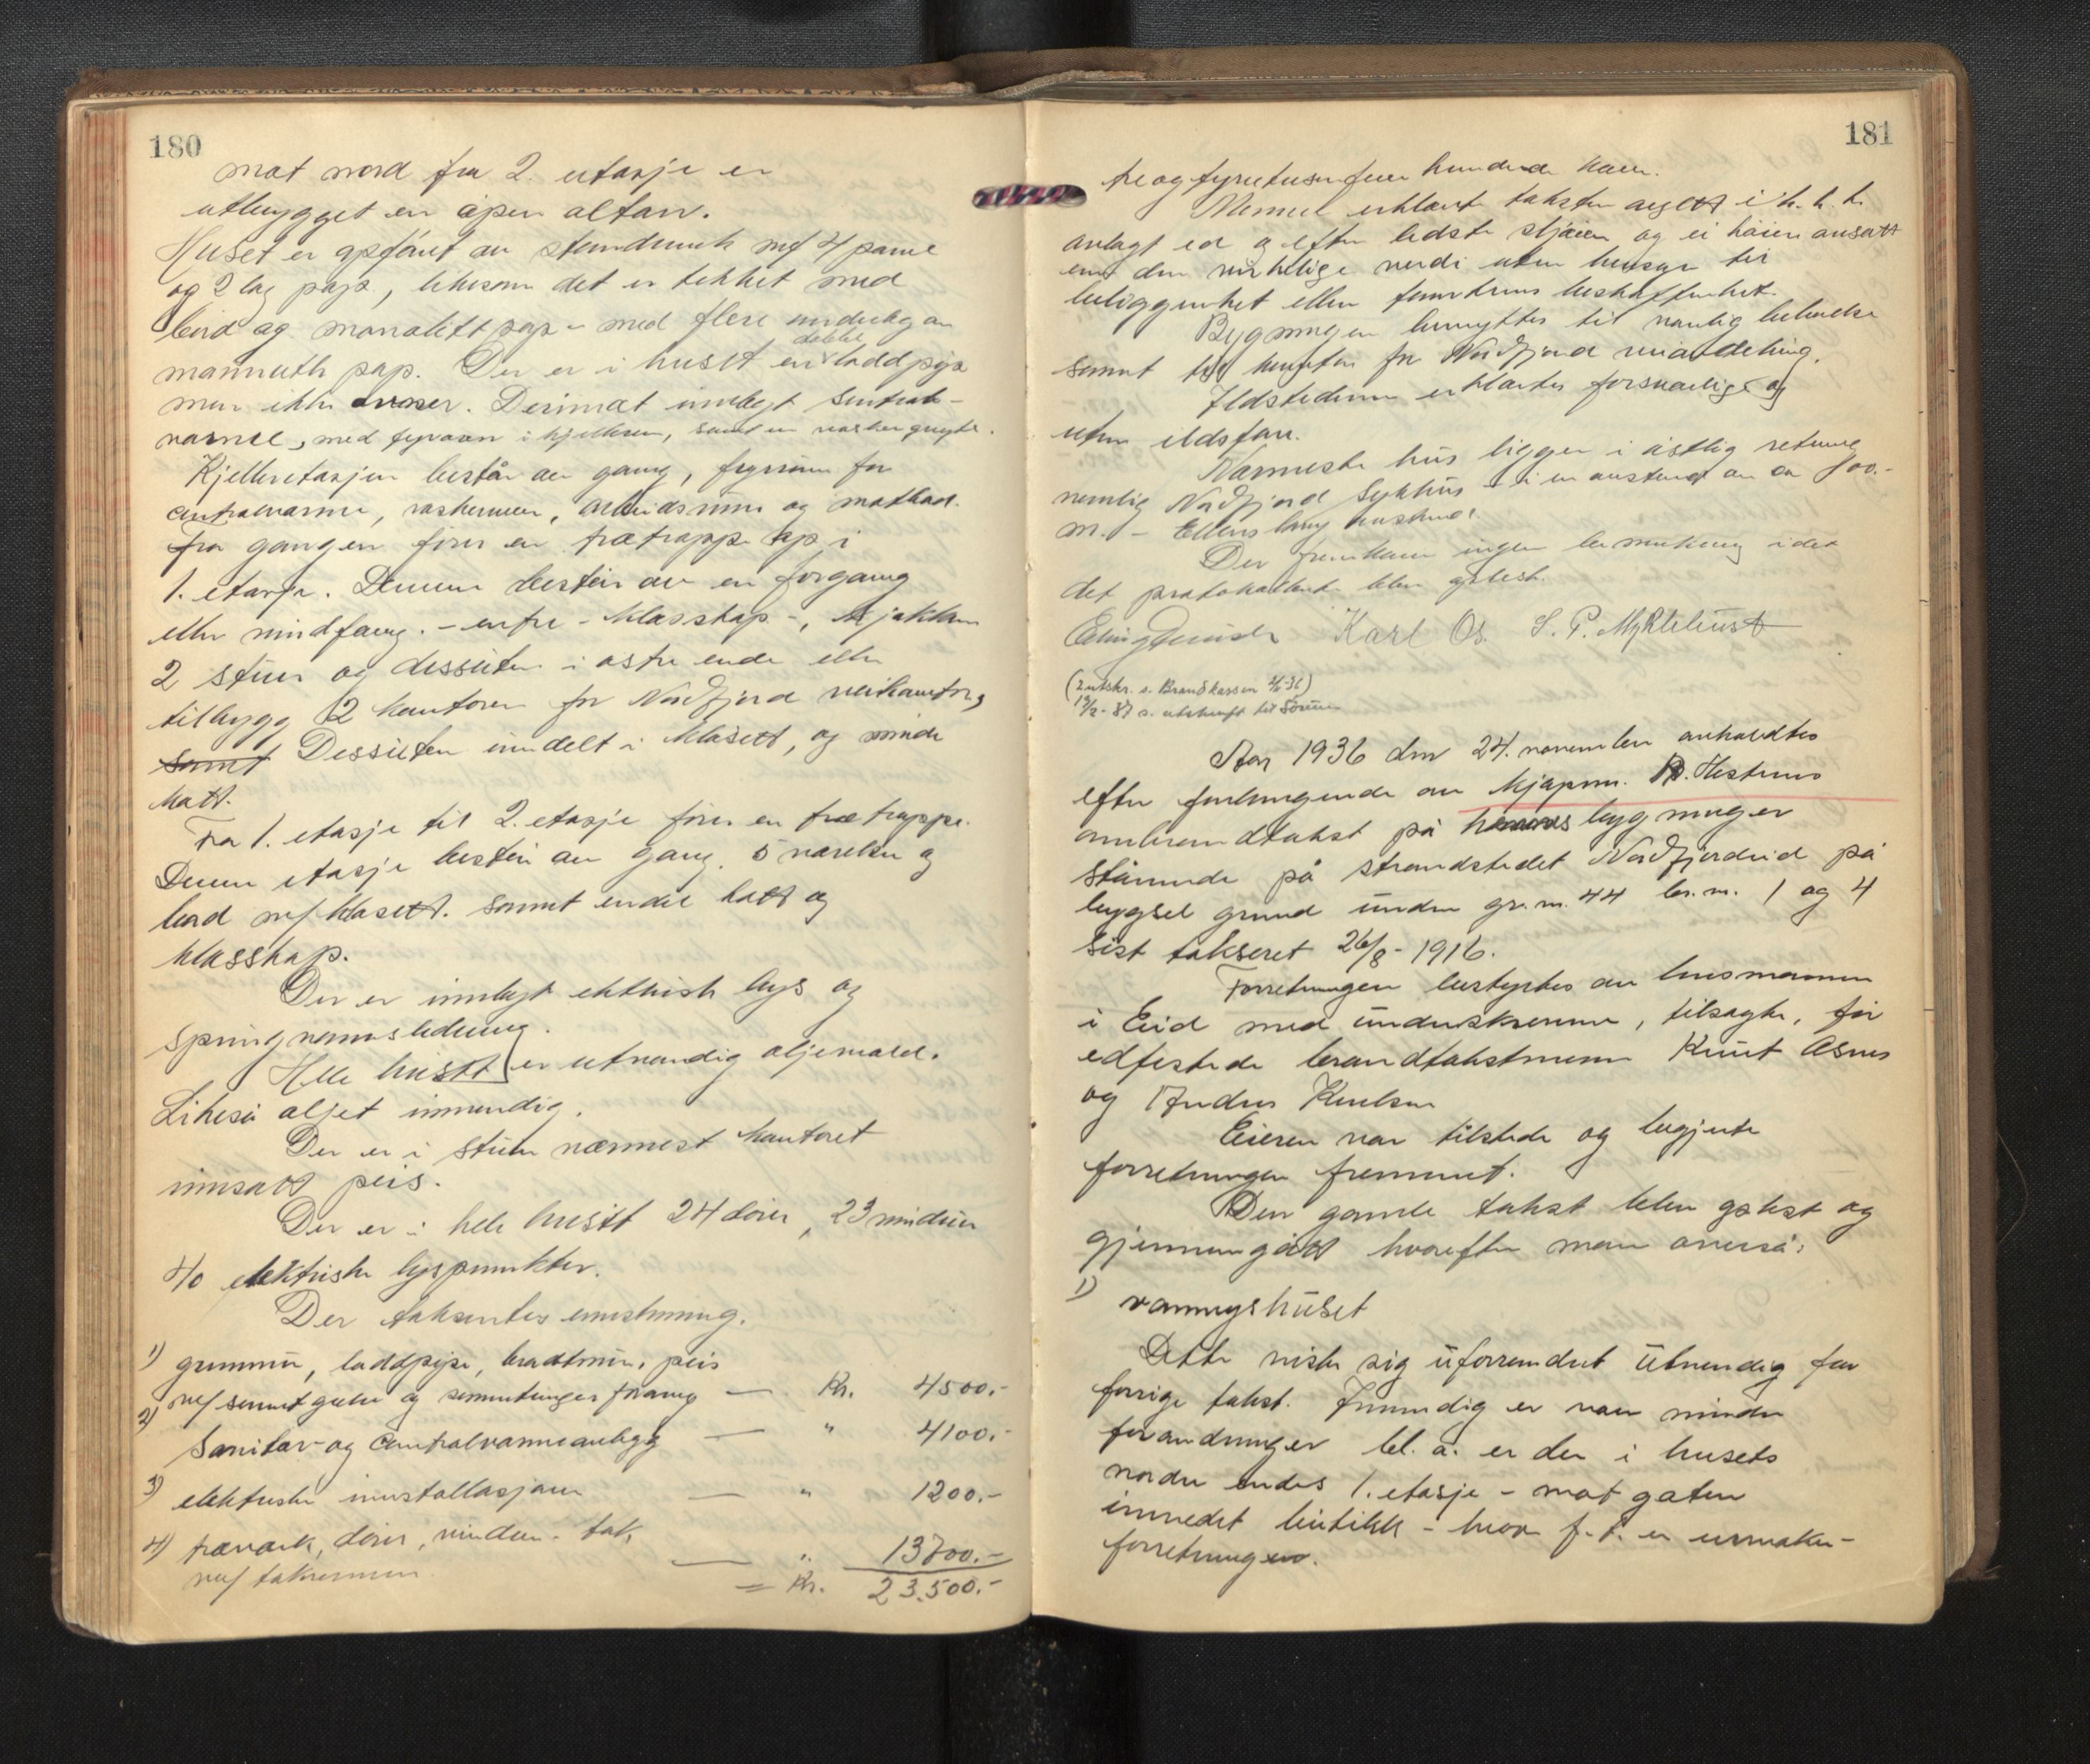 180
mot nord fra 2. etasje er
utbygget en åpen altan.
Huset er opført av stenderverk m/ 4 panel
og 2 lag papp, likesom det er tekket med
bord og papp - med flere underlag av
dobbel
papp. Der er i huset en loddpipe
men ikke ovner. Derimot innlagt sentral-
varme, med fyrovn i kjelleren, samt en vaskegryte.
Kjelleretasjen består av gang, fyrrum for
centralvarme, vaskerum, arbeidsrum og matbod.
Fra gangen fører en trætrapp op i
1. etasje. Denne består av en forgang
eller vindfang. - entre - klæsskap -, kjøkken
2 stuer og dessuten i østre ende eller
tilbygg 2 kontorer for Nordfjord veikontor,
samt Dessuten inndelt i klosett, og mindre
kott.
Fra 1. etasje til 2. etasje fører en trætrappe.
Denne etasje består av gang, 5 værelser og
bad m/ klosett. samt endel kott og
klæsskap.
Der er innlagt elektrisk lys og
springvannsledning.
Hele huset er utvendig oljemalt.
Likeså oljet innvendig.
Der er i stuen nærmest kontoret
innsatt peis.
Der er i hele huset 24 dører, 23 vinduer
40 elektriske lyspunkter.
Der taksertes enstemmig.
1) grunnmur, loddpipe, brandmur, peis
m/ sement gulv og forøvrig — Kr. 4500.-
2) Sanitær- og Centralvarmeanlegg — " 4100.-
3) elektriske installasjoner — " 1200.-
4) treverk, dører, vinduer - tak
m/ takrenner — " 13700.-
= Kr. 23.500.-
181
tre og tyvetusen fem hundrede kroner.
erklærte taksten avgitt i h. h. t.
avlagt ed og efter bedste skjønn og ei høiere ansatt
enn den virkelige verdi uten hensyn til
beliggenhet eller tomtens beskaffenhet.
Bygningen benyttes til vanlig beboelse
samt til kontor for Nordfjord veiavdeling.
Ildstedene erklærtes forsvarlige og
uten ildsfare.
Nærmeste hus ligger i østlig retning
nemlig Nordfjord Sykehus - i en avstand av ca 100.-
m. - Ellers huskrets.
Der fremkom ingen bemerkning idet
det protokollerte blev oplest.
Karl Os. S. P. Myklebust
(2 utskr. s. Brandkassen 36)
19/2-37 s. utskrift til
Aar 1936 den 24. november avholdtes
efter forlangende av kjøpm. R. Hestenes
ombrandtakst på hanns bygninger
stående på strandstedet Nordfjordeid på
bygsel grund under gr.nr. 44 br.nr. 1 og 4
sist taksert 26/8-1916.
Forretningen bestyrtes av lensmannen
i Eid med underskrevne, tilsagte, før
edfestede brandtakstmenn Knut ASnes
og Andres
Eieren var tilstede og begjærte
forretningen fremmet.
Den gamle takst blev oplest og
gjennemgått hvorefter man overså:
1) vaaningshuset
Dette viste sig uforandret utvendig fra
forrige takst. Innvendig er noen mindre
forandringer bl. a. er der i husets
nordre endes 1. etasje - mot gaten
innredet butikk - hvor f. t. er urmaker-
forretningen.